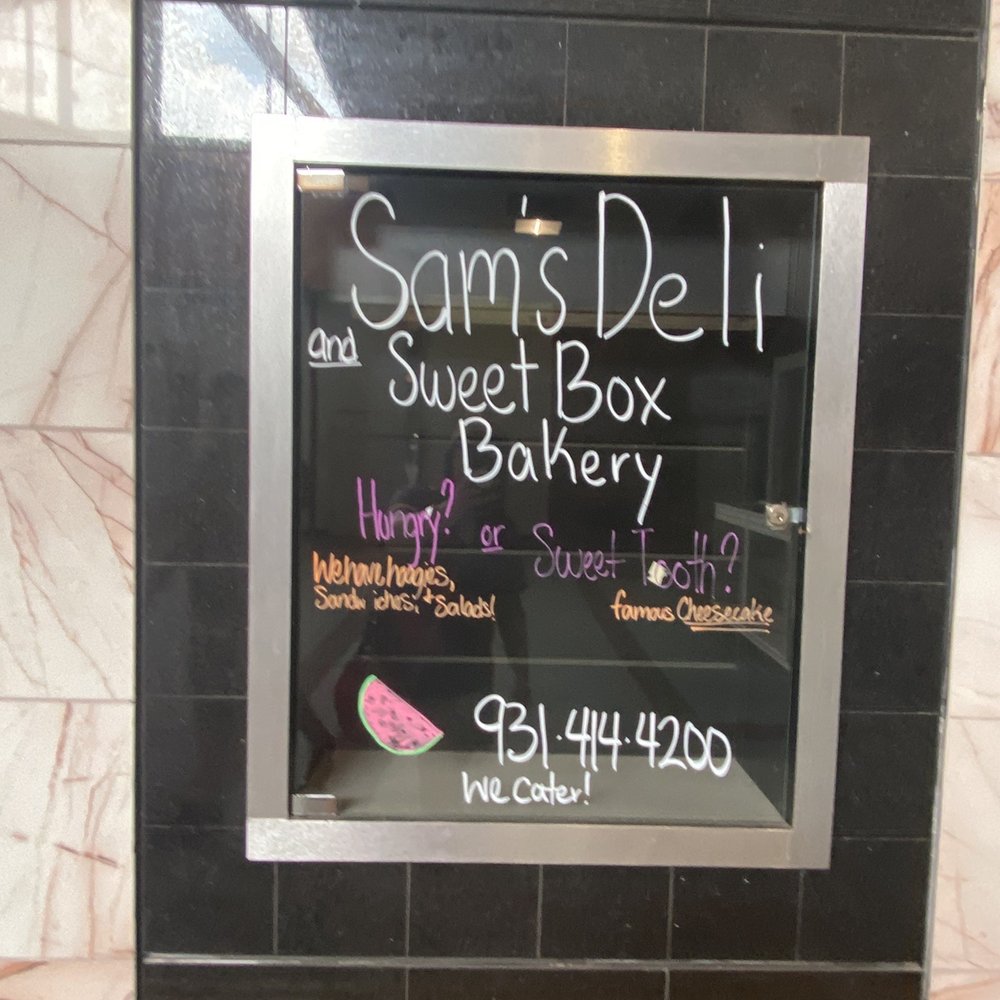 Sam's Deli
and Sweet Box
Bakery
Hungry? or Sweet Tooth?
We have hoagies,
Sandwiches, + Salads!
famous Cheesecake
931.414.4200
We Cater!